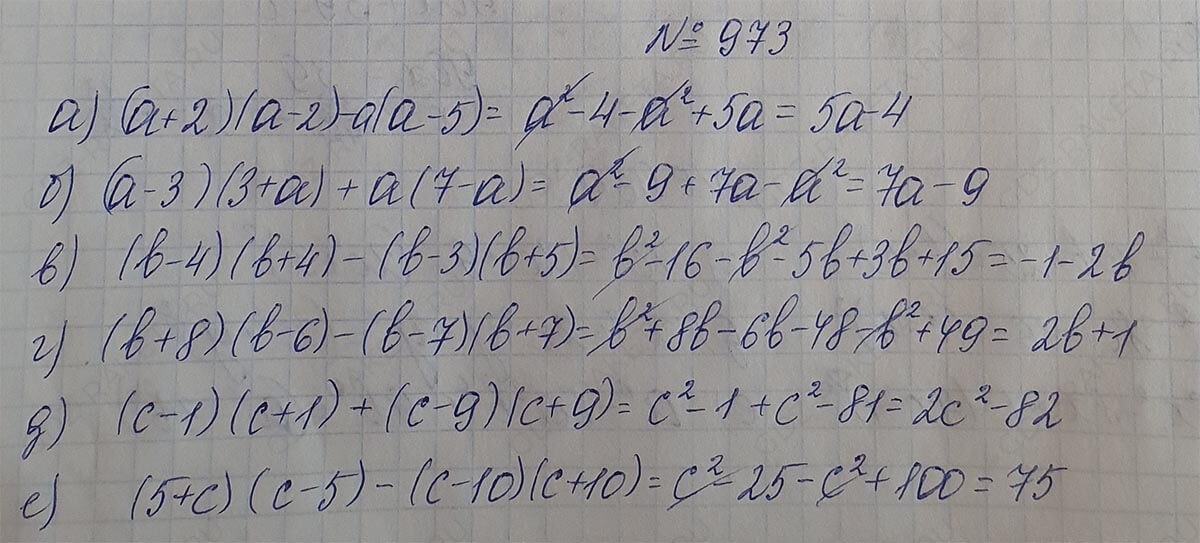 № 973
а) (a+2)(a-2)-a(a-5)= a²-4-a²+5a= 5a-4
б) (a-3)(3+a)+a(7-a)= a²-9+7a-a²=7a-9
в) (b-4)(b+4)-(b-3)(b+5)= b²-16-b²-5b+3b+15=-1-2b
г) (b+8)(b-6)-(b-7)(b+7)=b²+8b-6b-48-b²+49= 2b+1
д) (c-1)(c+1)+(c-9)(c+9)= c²-1+c²-81=2c²-82
е) (5+c)(c-5)-(c-10)(c+10)=c²-25-c²+100=75